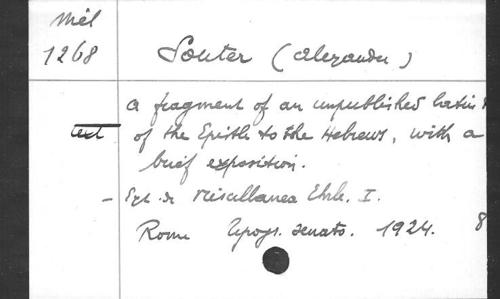 Mél
1268
Souter (Alexander)
A fragment of an unpublished latin
text
of the Epistle to the Hebrews, with a
brief exposition.
- Ext. de Miscellanea Ehrle. I.
Rome Tipogr. senato. 1924. 8